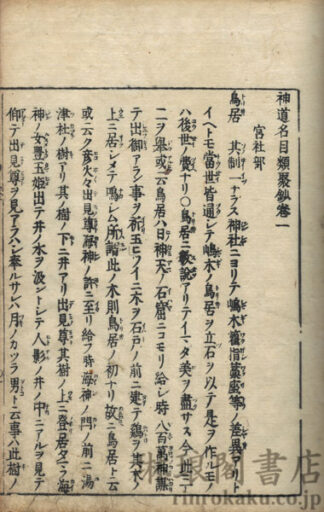 神道名目類聚鈔巻一
宮社部
鳥居 其制一ナラス神社ニヨリテ嶋木籠指藁座等ノ差異アリト
イヘトモ當世皆通シテ嶋木ノ鳥居ヲ立石ヲ以テ是ヲ作レモ
ハ後世ノ製ナリ○鳥居ニ数説アリテイマタ美ヲ盡サス今此ニ
二ヲ舉或云鳥居ハ日神天ノ石窟ニコモリ給シ時八百萬神謀
テ出御アラン事ヲ祈玉ヒ イニ木ヲ石戸ノ前ニ建テ鶏ヲ其木ノ
上ニ居シメテ鳴シム所謂此ノ木則鳥居ノ初ナリ故ニ鳥居ト云
或云彦火々出見尊海神ノ許ニ至リ給フ時海神ノ門ノ前ニ湯
津杜ノ樹アリ其樹ノ下ニ井アリ出見尊其樹ノ上ニ登居タマヘ海
神ノ女豊玉姫出テ井ノ水ヲ汲ントシテ人影ノ井ノ中ニアルヲ見テ
仰テ出見尊ヲ見アラハシ奉ルサレハ月ノカツラ男ト云事ハ此樹ノ
rinrokaku.co.jp